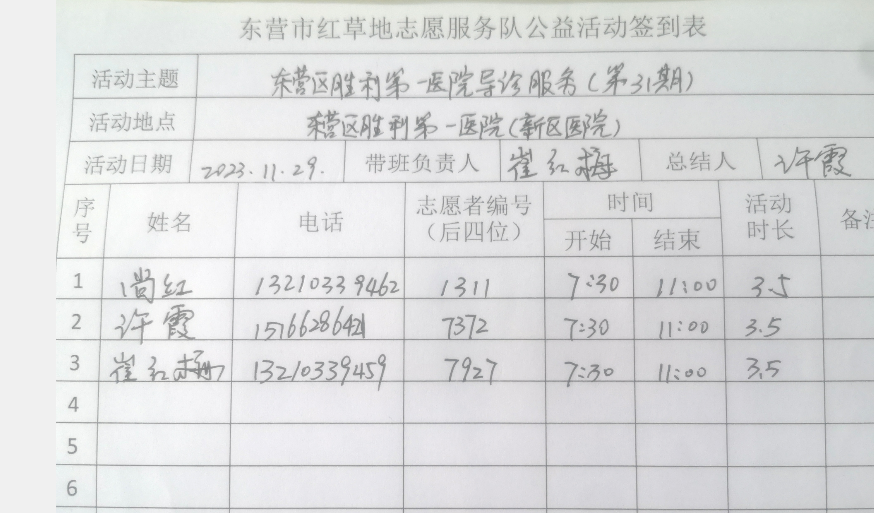 东营市红草地志愿服务队公益活动签到表
活动主题 东营区胜利第一医院导诊服务(第31期)
活动地点 东营区胜利第一医院(新区医院)
活动日期 2023.11.29. 带班负责人 崔红梅 总结人 许霞
序号 姓名 电话 志愿者编号(后四位) 时间 开始 结束 活动时长 备注
1 尚红 13210339462 1311 7:30 11:00 3.5
2 许霞 15766286421 7372 7:30 11:00 3.5
3 崔红梅 13210339459 7927 7:30 11:00 3.5
4
5
6